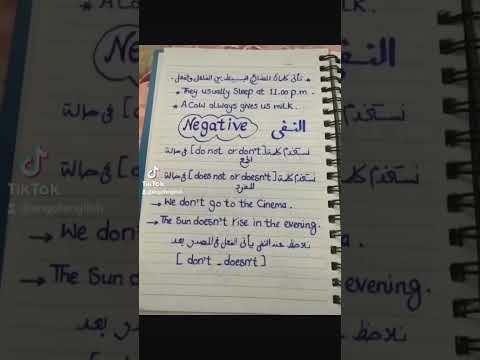 * تأتى كلمات المضارع البسيط بين الفاعل والفعل .
* They usually sleep at 11.00 p.m .
* A Cow always gives us milk .
Negative النفى
نستخدم كلمة [do not or don't] فى حالة
الجمع
نستخدم كلمة [does not or doesn't] فى حالة
المفرد
→ We don't go to the Cinema .
→ The Sun doesn't rise in the evening.
نلاحظ عند النفى يأتى الفعل فى المصدر بعد
[ don't - doesn't ]
TikTok
TikTok